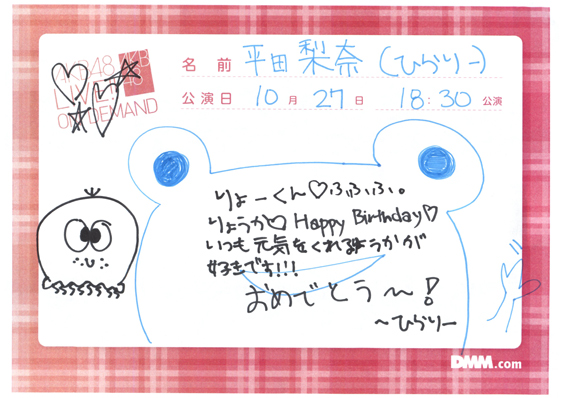 AKB48
LIVE!!
ON DEMAND
AKB
48
名前 平田梨奈（ひらりー）
公演日 10月27日 18:30公演
りょーくん♡ふふふ。
りょうか♡ Happy Birthday♡
いつも元気をくれるりょうかが
好きです!!!
おめでとう〜!
〜ひらりー
DMM.com